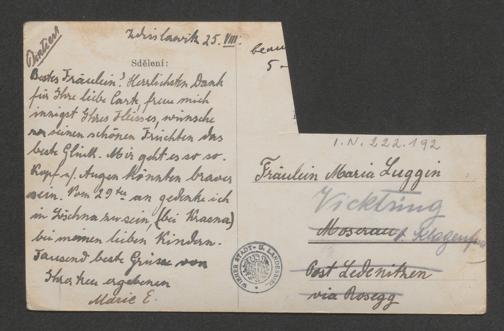 Diktiert
Zdislawitz 25. VIII.
Sdělení:
Bestes Fräulein! Herrlichsten Dank
für Ihre liebe Carte, freue mich
innigst Ihres Fleisses, wünsche
seinen schönen Früchten das
beste Glück. Mir geht es so so.
Kopf u. Augen könnten braver
sein. Vom 29ten an gedenke ich
in zu sein, (bei
bei meinen lieben Kindern.
Tausend beste Grüsse von
Ihrer ergebenen
Marie E.
5 –
I.N. 222.192
Fräulein Maria Luggin
Vicktring
Moserau b. Klagenfurt
Post Ledenitzen
via Rosegg
WIENER STADT- U. LANDESBIBL.